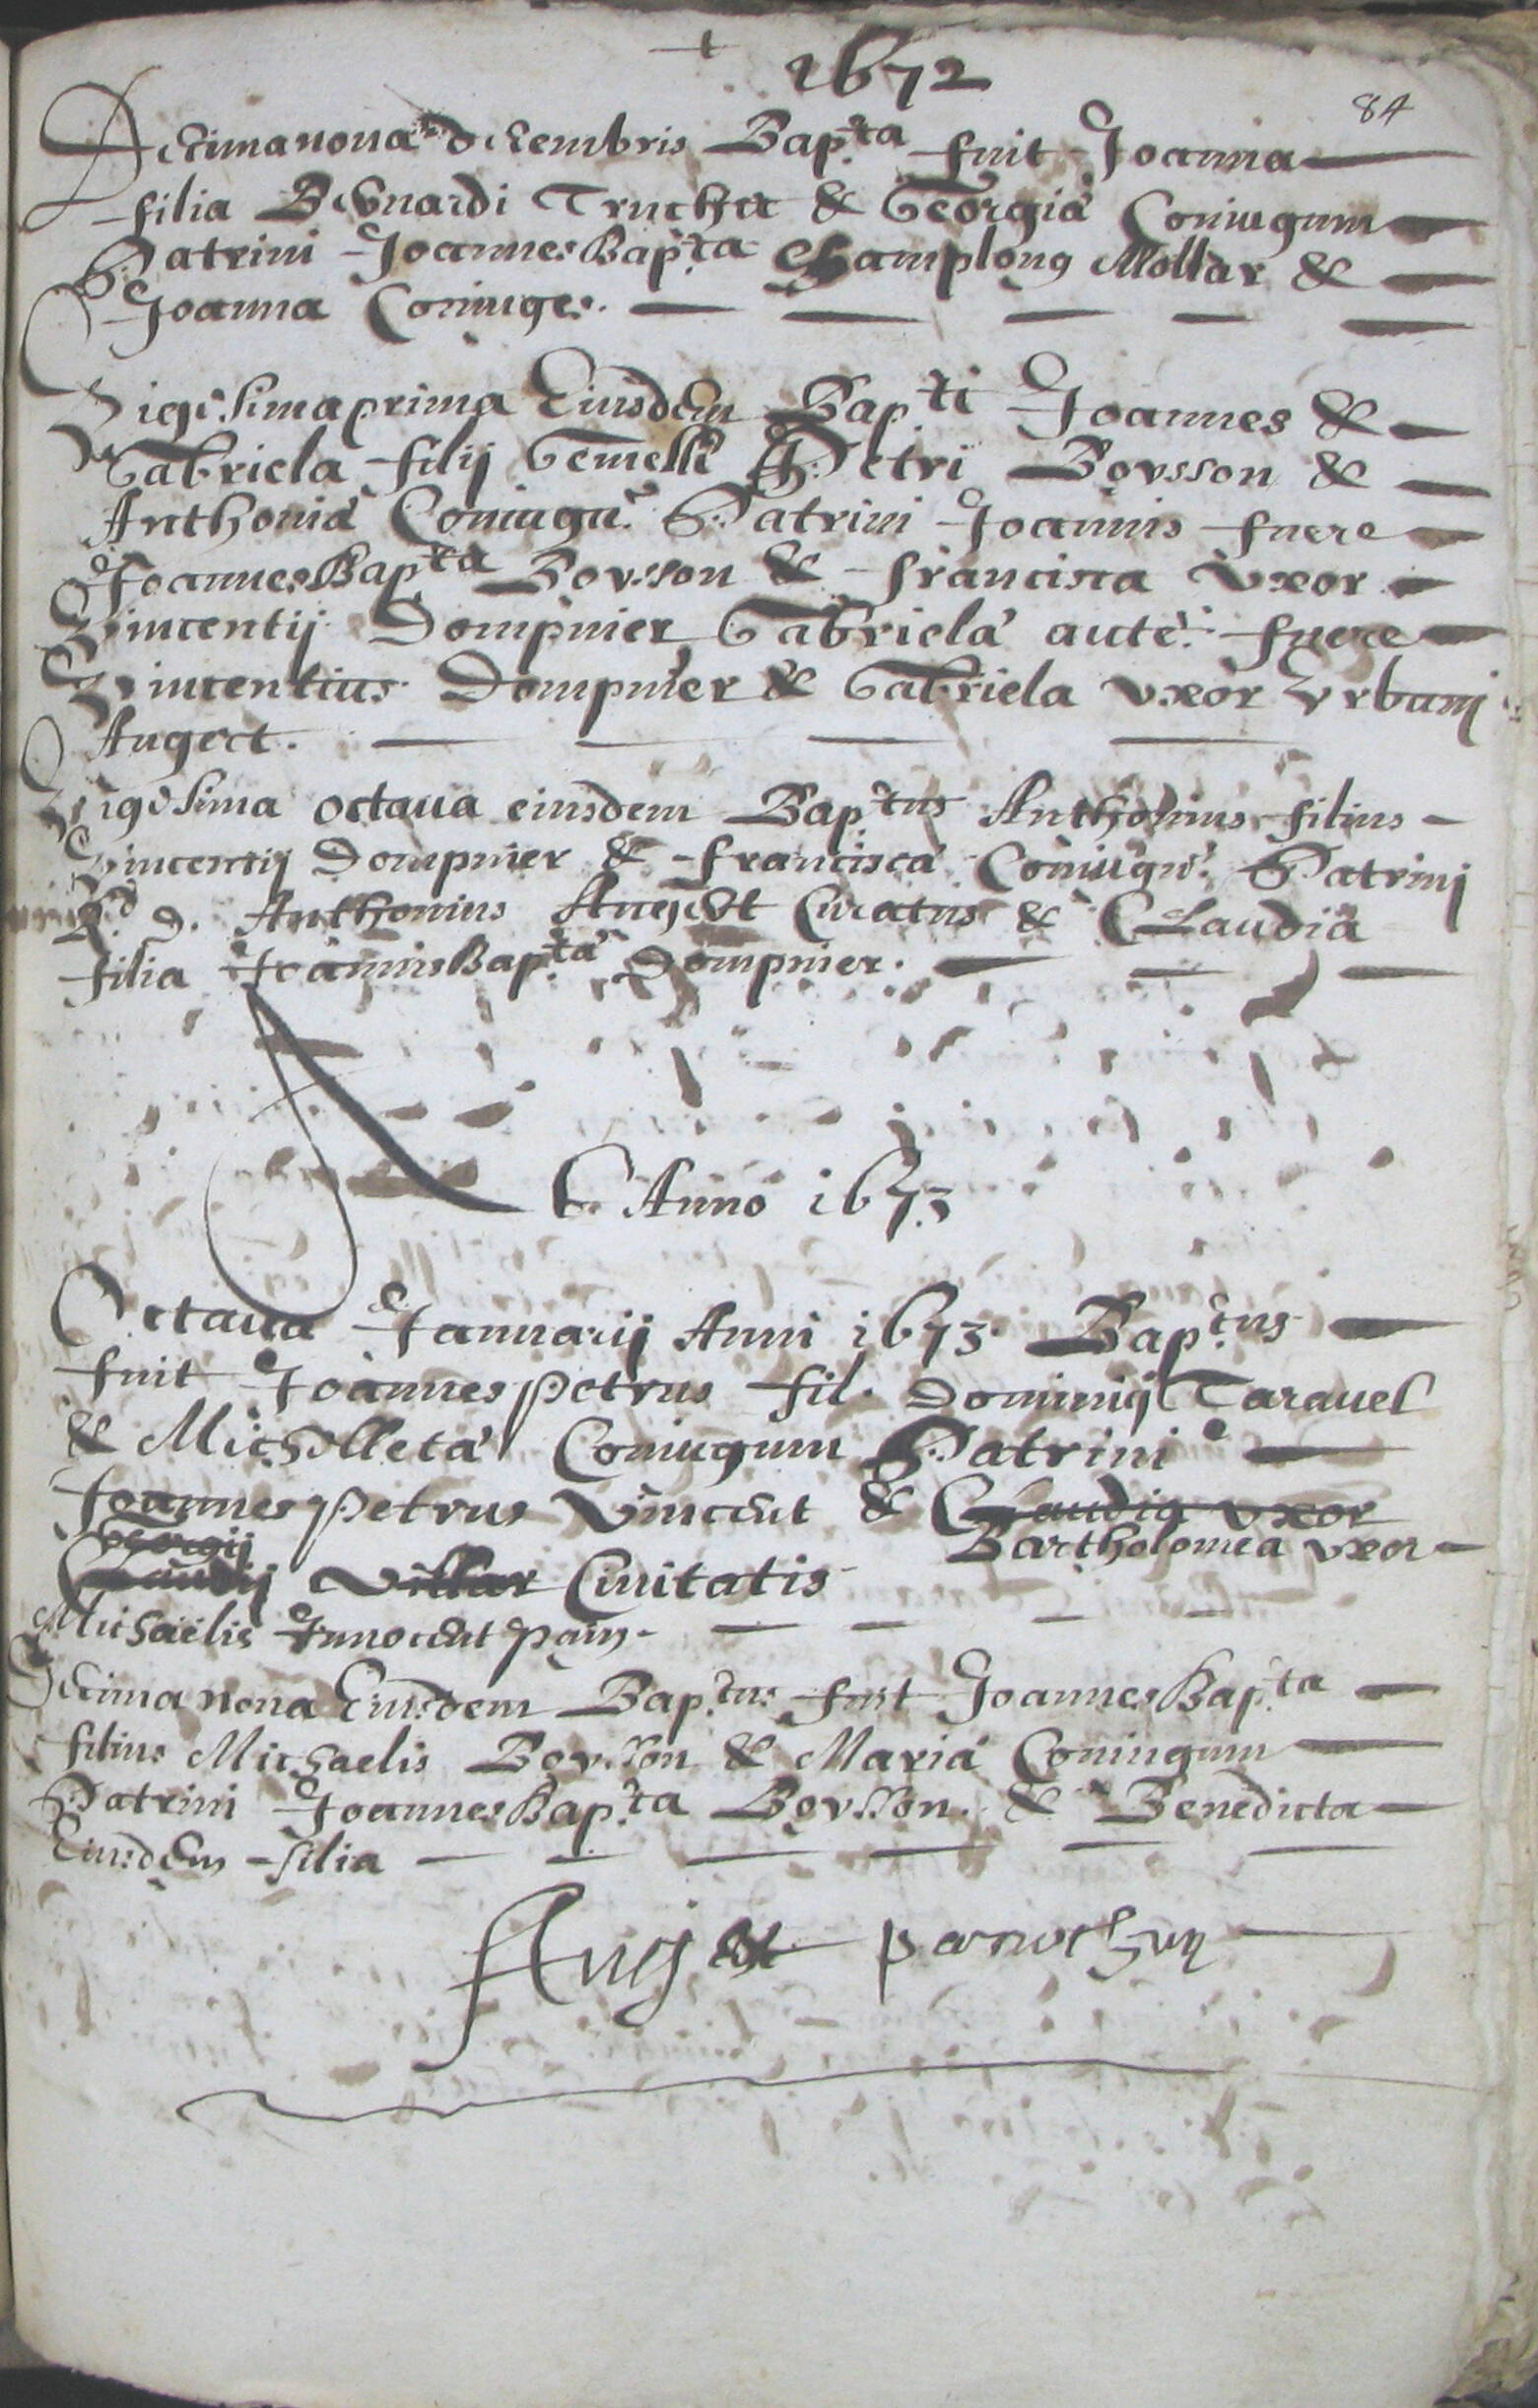 + 1672
84
Decimanona decembris Bap.ta fuit Joanna
filia Bernardi Truchet & Georgià Coniugum
Patrini JoannesBap.ta Champlong Mollar &
Joanna Coniuges.
Vigesimaprima Eiusdem Bap.ti Joannes &
Gabriela filij Gemelli Petri Bovsson &
Anthonià Coniugũ. Patrini Joannis fuere
JoannesBap.ta Bovsson & francisca vxor
Vincentij Dompnier Gabrielà autẽ. fuere
Vincentius Dompnier & Gabriela vxor Vrbani
Augert.
Vigesima octaua eiusdem Bap.tus Anthonius filius
Vincentij Dompnier & franciscà Coniugũ. Patrinj
R.d d. Anthonius Augert Curatus & Claudia
filia JoannisBap.tà Dompnier.
Anno 1673
Octaua Januarij Anni 1673. Bap.tus
fuit Joannes petrus fil. Dominij Tarauel
& Michelletà Coniugum Patrini
Joannes petrus Vincent & Claudia vxor
Georgij Bartholomea vxor
Claudij Villar Ciuitatis
Michaelis Innocent pain.
Decima nona Eiusdem Bap.tus fuit JoannesBap.ta
filius Michaelis Bovsson & Marià Coniugum
Patrini JoannesBap.ta Bovsson. & Benedicta
Eiusdem filia
Augert parrochus